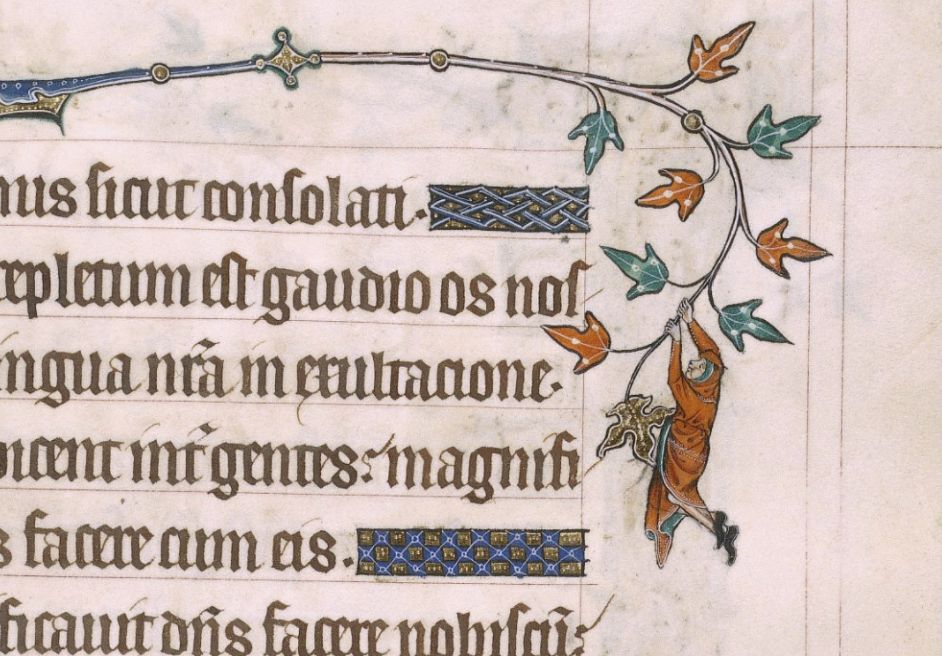 mus sicut consolati.
repletum est gaudio os nos
ingua nr̄a in exultacione.
dicent int̄ gentes: magnifi
s facere cum eis.
ficauit dn̄s facere nobiscū: